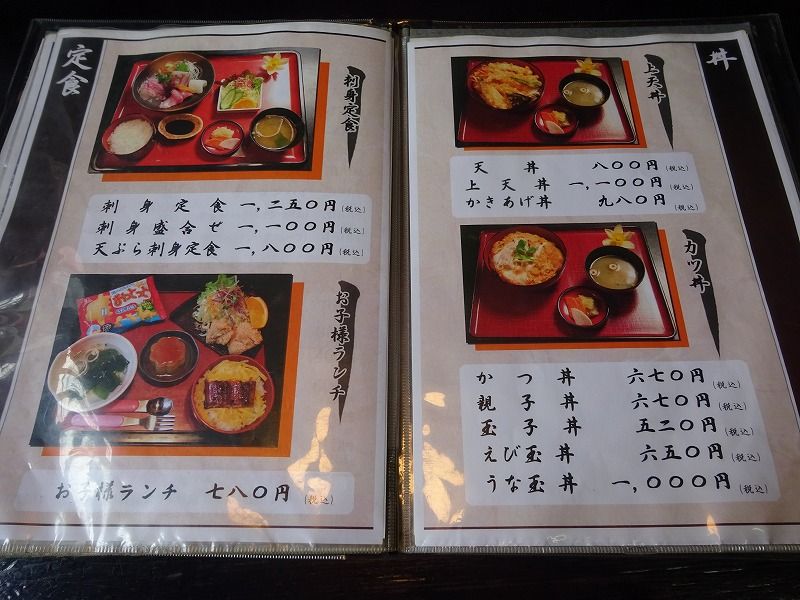 定食
刺身定食
刺身定食 一,二五〇円(税込)
刺身盛合せ 一,一〇〇円(税込)
天ぷら刺身定食 一,八〇〇円(税込)
お子様ランチ
おっとっと
お子様ランチ 七八〇円(税込)
丼
上天丼
天丼 八〇〇円(税込)
上天丼 一,一〇〇円(税込)
かきあげ丼 九八〇円(税込)
カツ丼
かつ丼 六七〇円(税込)
親子丼 六七〇円(税込)
玉子丼 五二〇円(税込)
えび玉丼 六五〇円(税込)
うな玉丼 一,〇〇〇円(税込)